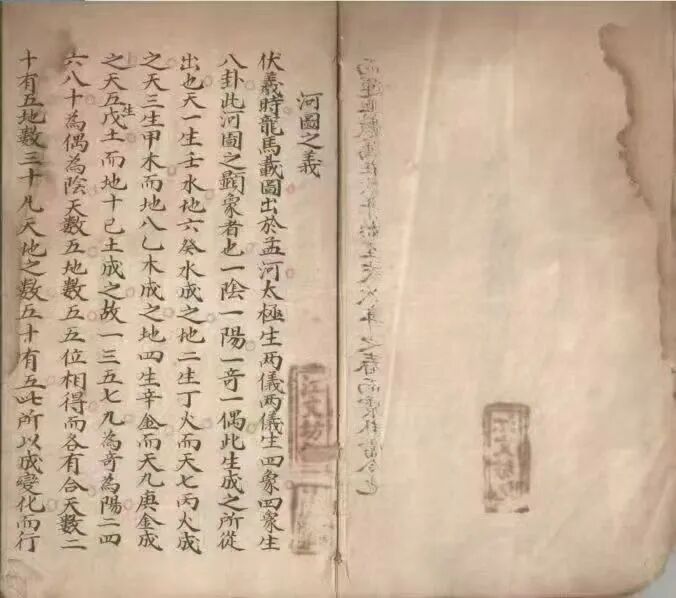 河圖之義
伏羲時龍馬載圖出於孟河太極生两儀两儀生四象四象生
八卦此河圖之顕象者也一陰一陽一竒一偶此生成之所從
出也天一生壬水地六癸水成之地二生丁火而天七丙火成
之天三生甲木而地八乙木成之地四生辛金而天九庚金成
之天五生戊土而地十己土成之故一三五七九為竒為陽二四
六八十為偶為陰天數五地數五五位相得而各有合天數二
十有五地數三十凡天地之數五十有五此所以成變化而行
江文坊
江文坊